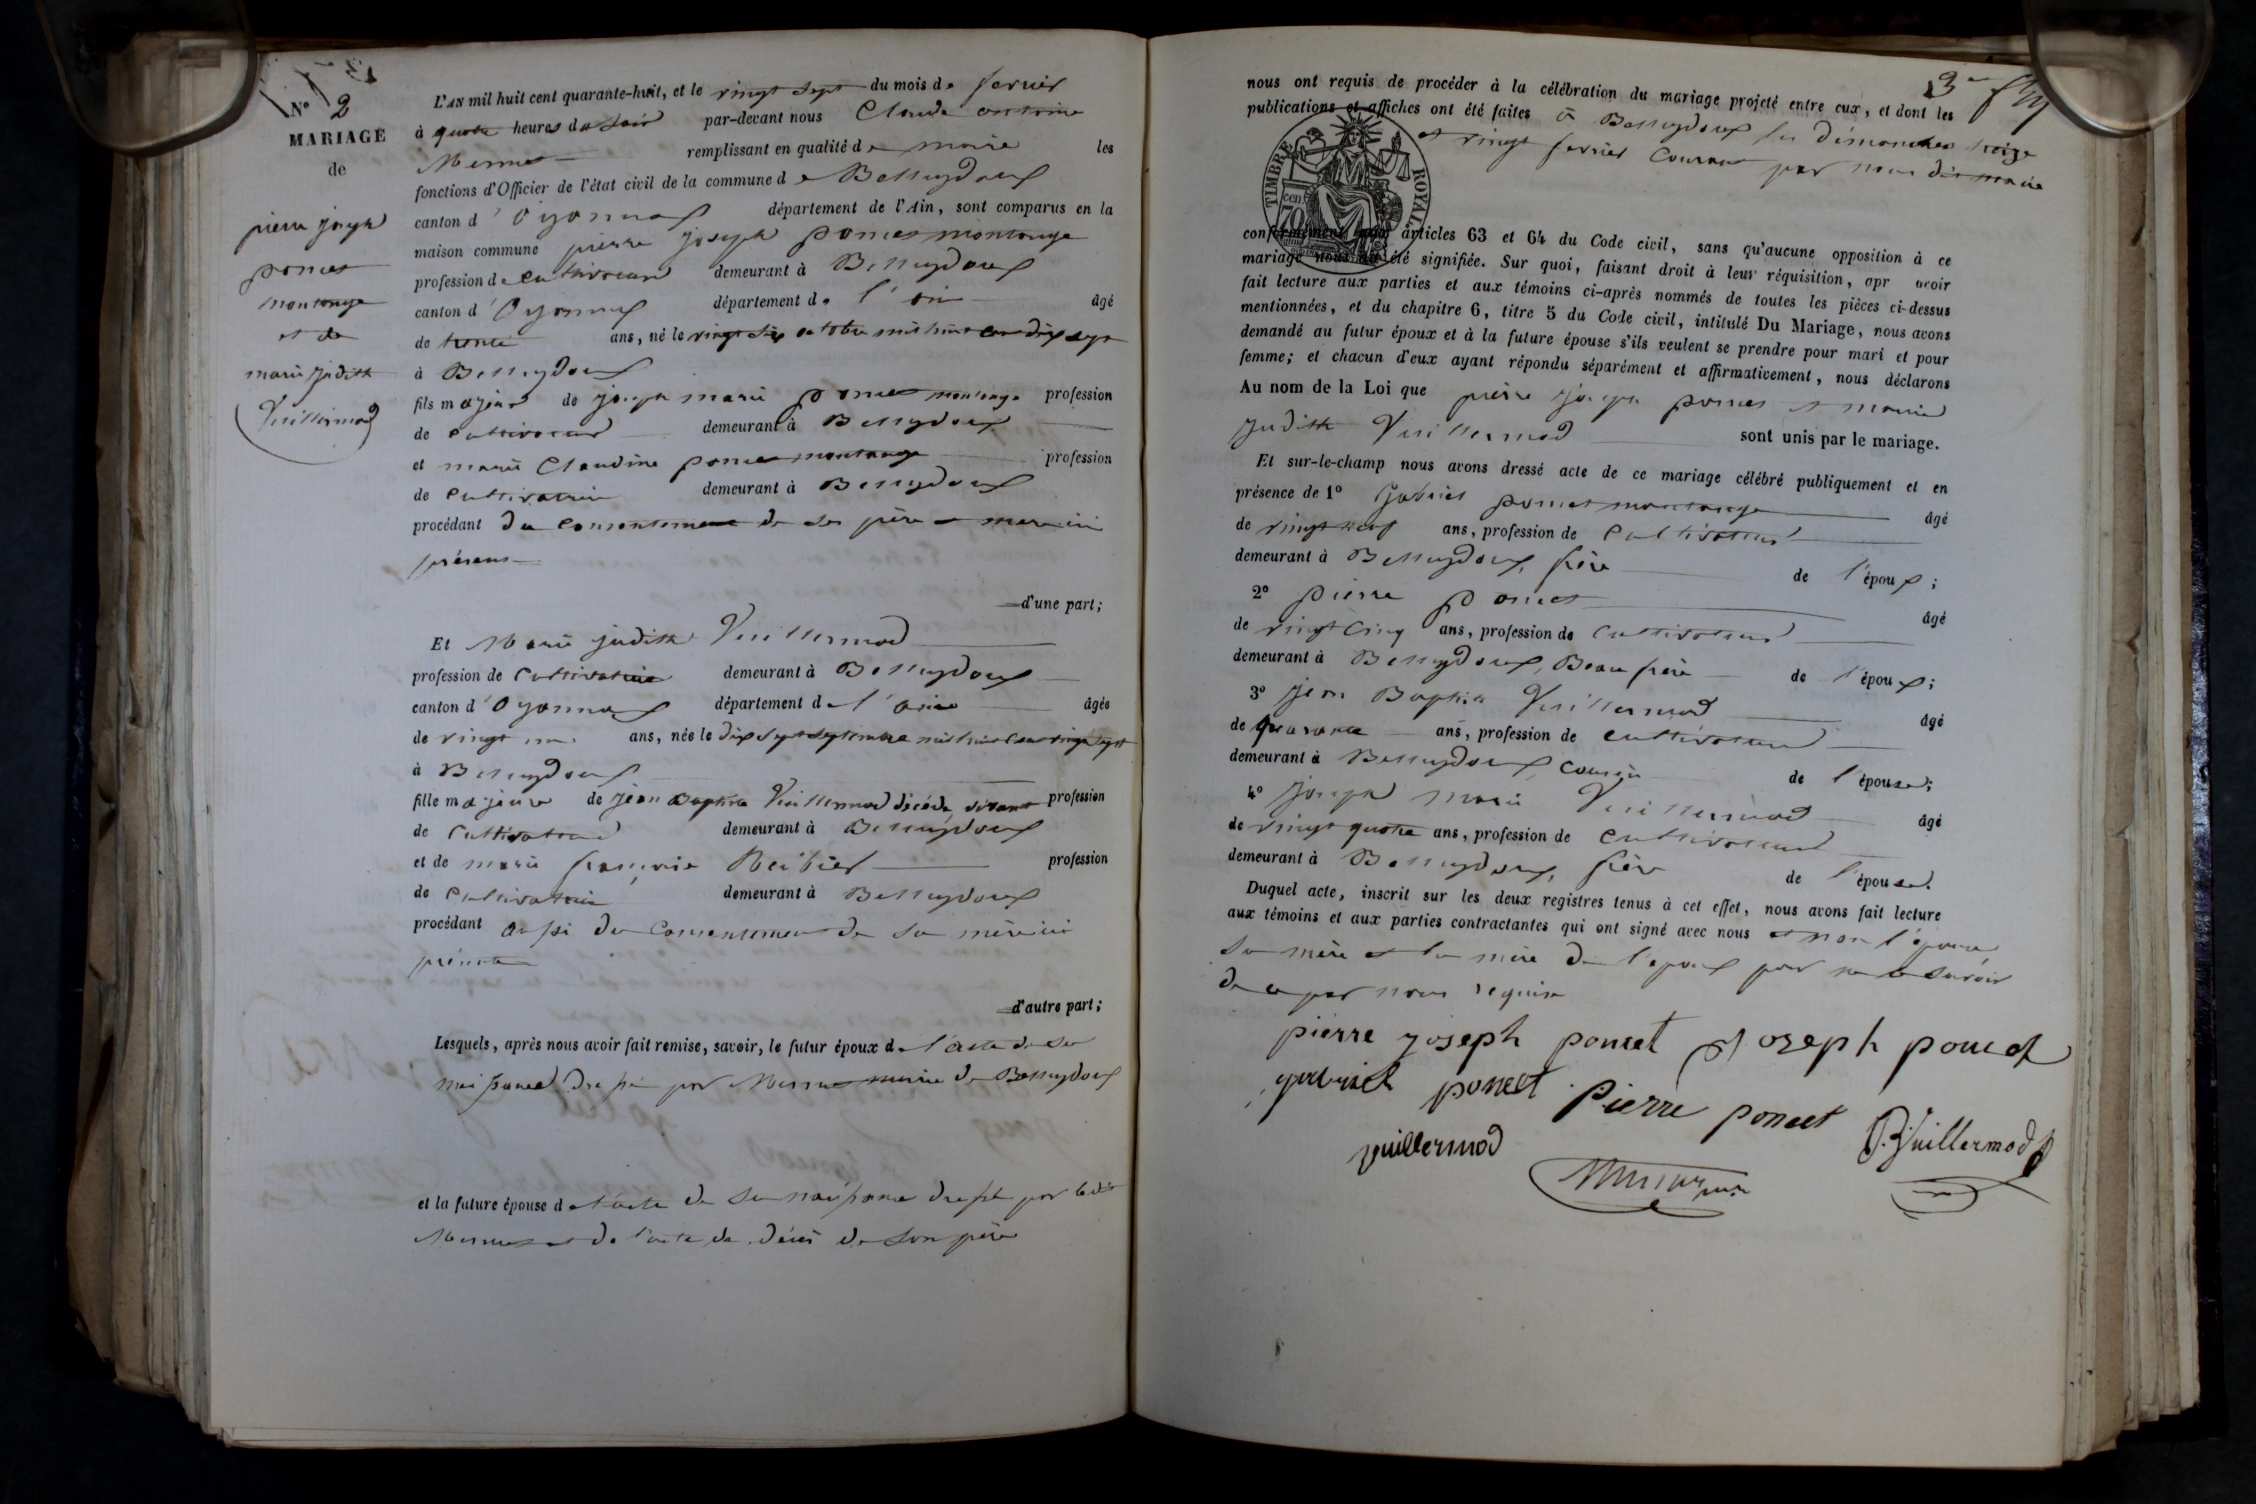 N° 2
MARIAGE
de
pierre joseph
poncet
montange
et de
marie judith
Vuillermod
L'AN mil huit cent quarante-huit, et le vingt sept du mois de fevrier
à quatre heures du soir par-devant nous Claude antoine
Mermet remplissant en qualité de maire les
fonctions d'Officier de l'état civil de la commune de Belleydoux
canton d'Oyonnax département de l'Ain, sont comparus en la
maison commune pierre joseph poncet montange
profession de cultivateur demeurant à Belleydoux
canton d'Oyonnax département de l'ain âgé
de trente ans, né le vingt six octobre mil huit cent dix sept
à Belleydoux
fils majeur de joseph marie poncet montange profession
de cultivateur demeurant à Belleydoux
et marie Claudine poncet montange profession
de cultivatrice demeurant à Belleydoux
procédant du consentement de ses père et mere ici
présens
d'une part;
Et Marie judith Vuillermod
profession de cultivatrice demeurant à Belleydoux
canton d'Oyonnax département de l'ain âgée
de vingt ans, née le dix sept septembre mil huit cent vingt sept
à Belleydoux
fille majeure de jean Baptiste Vuillermod décédé vivant profession
de cultivateur demeurant à Belleydoux
et de marie françoise profession
de cultivatrice demeurant à Belleydoux
procédant aussi du consentement de sa mère ici
présente
d'autre part;
Lesquels, après nous avoir fait remise, savoir, le futur époux de l'acte de sa
naissance dressé par Mermet maire de Belleydoux
et la future épouse de l'acte de sa naissance dressé par ledit
Mermet et de l'acte de décès de son père
nous ont requis de procéder à la célébration du mariage projeté entre eux, et dont les
publications et affiches ont été faites à Belleydoux les dimanches treize
et vingt fevrier courant par nous dit maire
TIMBRE ROYAL
70 cent
conformément aux articles 63 et 64 du Code civil, sans qu'aucune opposition à ce
mariage nous ait été signifiée. Sur quoi, faisant droit à leur réquisition, apr avoir
fait lecture aux parties et aux témoins ci-après nommés de toutes les pièces ci-dessus
mentionnées, et du chapitre 6, titre 5 du Code civil, intitulé Du Mariage, nous avons
demandé au futur époux et à la future épouse s'ils veulent se prendre pour mari et pour
femme; et chacun d'eux ayant répondu séparément et affirmativement, nous déclarons
Au nom de la Loi que pierre joseph poncet et marie
judith Vuillermod sont unis par le mariage.
Et sur-le-champ nous avons dressé acte de ce mariage célébré publiquement et en
présence de 1° Gabriel poncet montange âgé
de vingt neuf ans, profession de cultivateur
demeurant à Belleydoux, frère de l'époux;
2° pierre poncet âgé
de vingt cinq ans, profession de cultivateur
demeurant à Belleydoux, Beau frère de l'époux;
3° jean Baptiste Vuillermod âgé
de quarante ans, profession de cultivateur
demeurant à Belleydoux, cousin de l'épouse;
4° joseph marie Vuillermod âgé
de vingt quatre ans, profession de cultivateur
demeurant à Belleydoux, frère de l'épouse.
Duquel acte, inscrit sur les deux registres tenus à cet effet, nous avons fait lecture
aux témoins et aux parties contractantes qui ont signé avec nous et non l'épouse
sa mère et la mère de l'epoux pour ne le savoir
de ce par nous requise
pierre joseph poncet joseph poncet
gabriel poncet pierre poncet
vuillermod J.B Vuillermod
Mermet maire